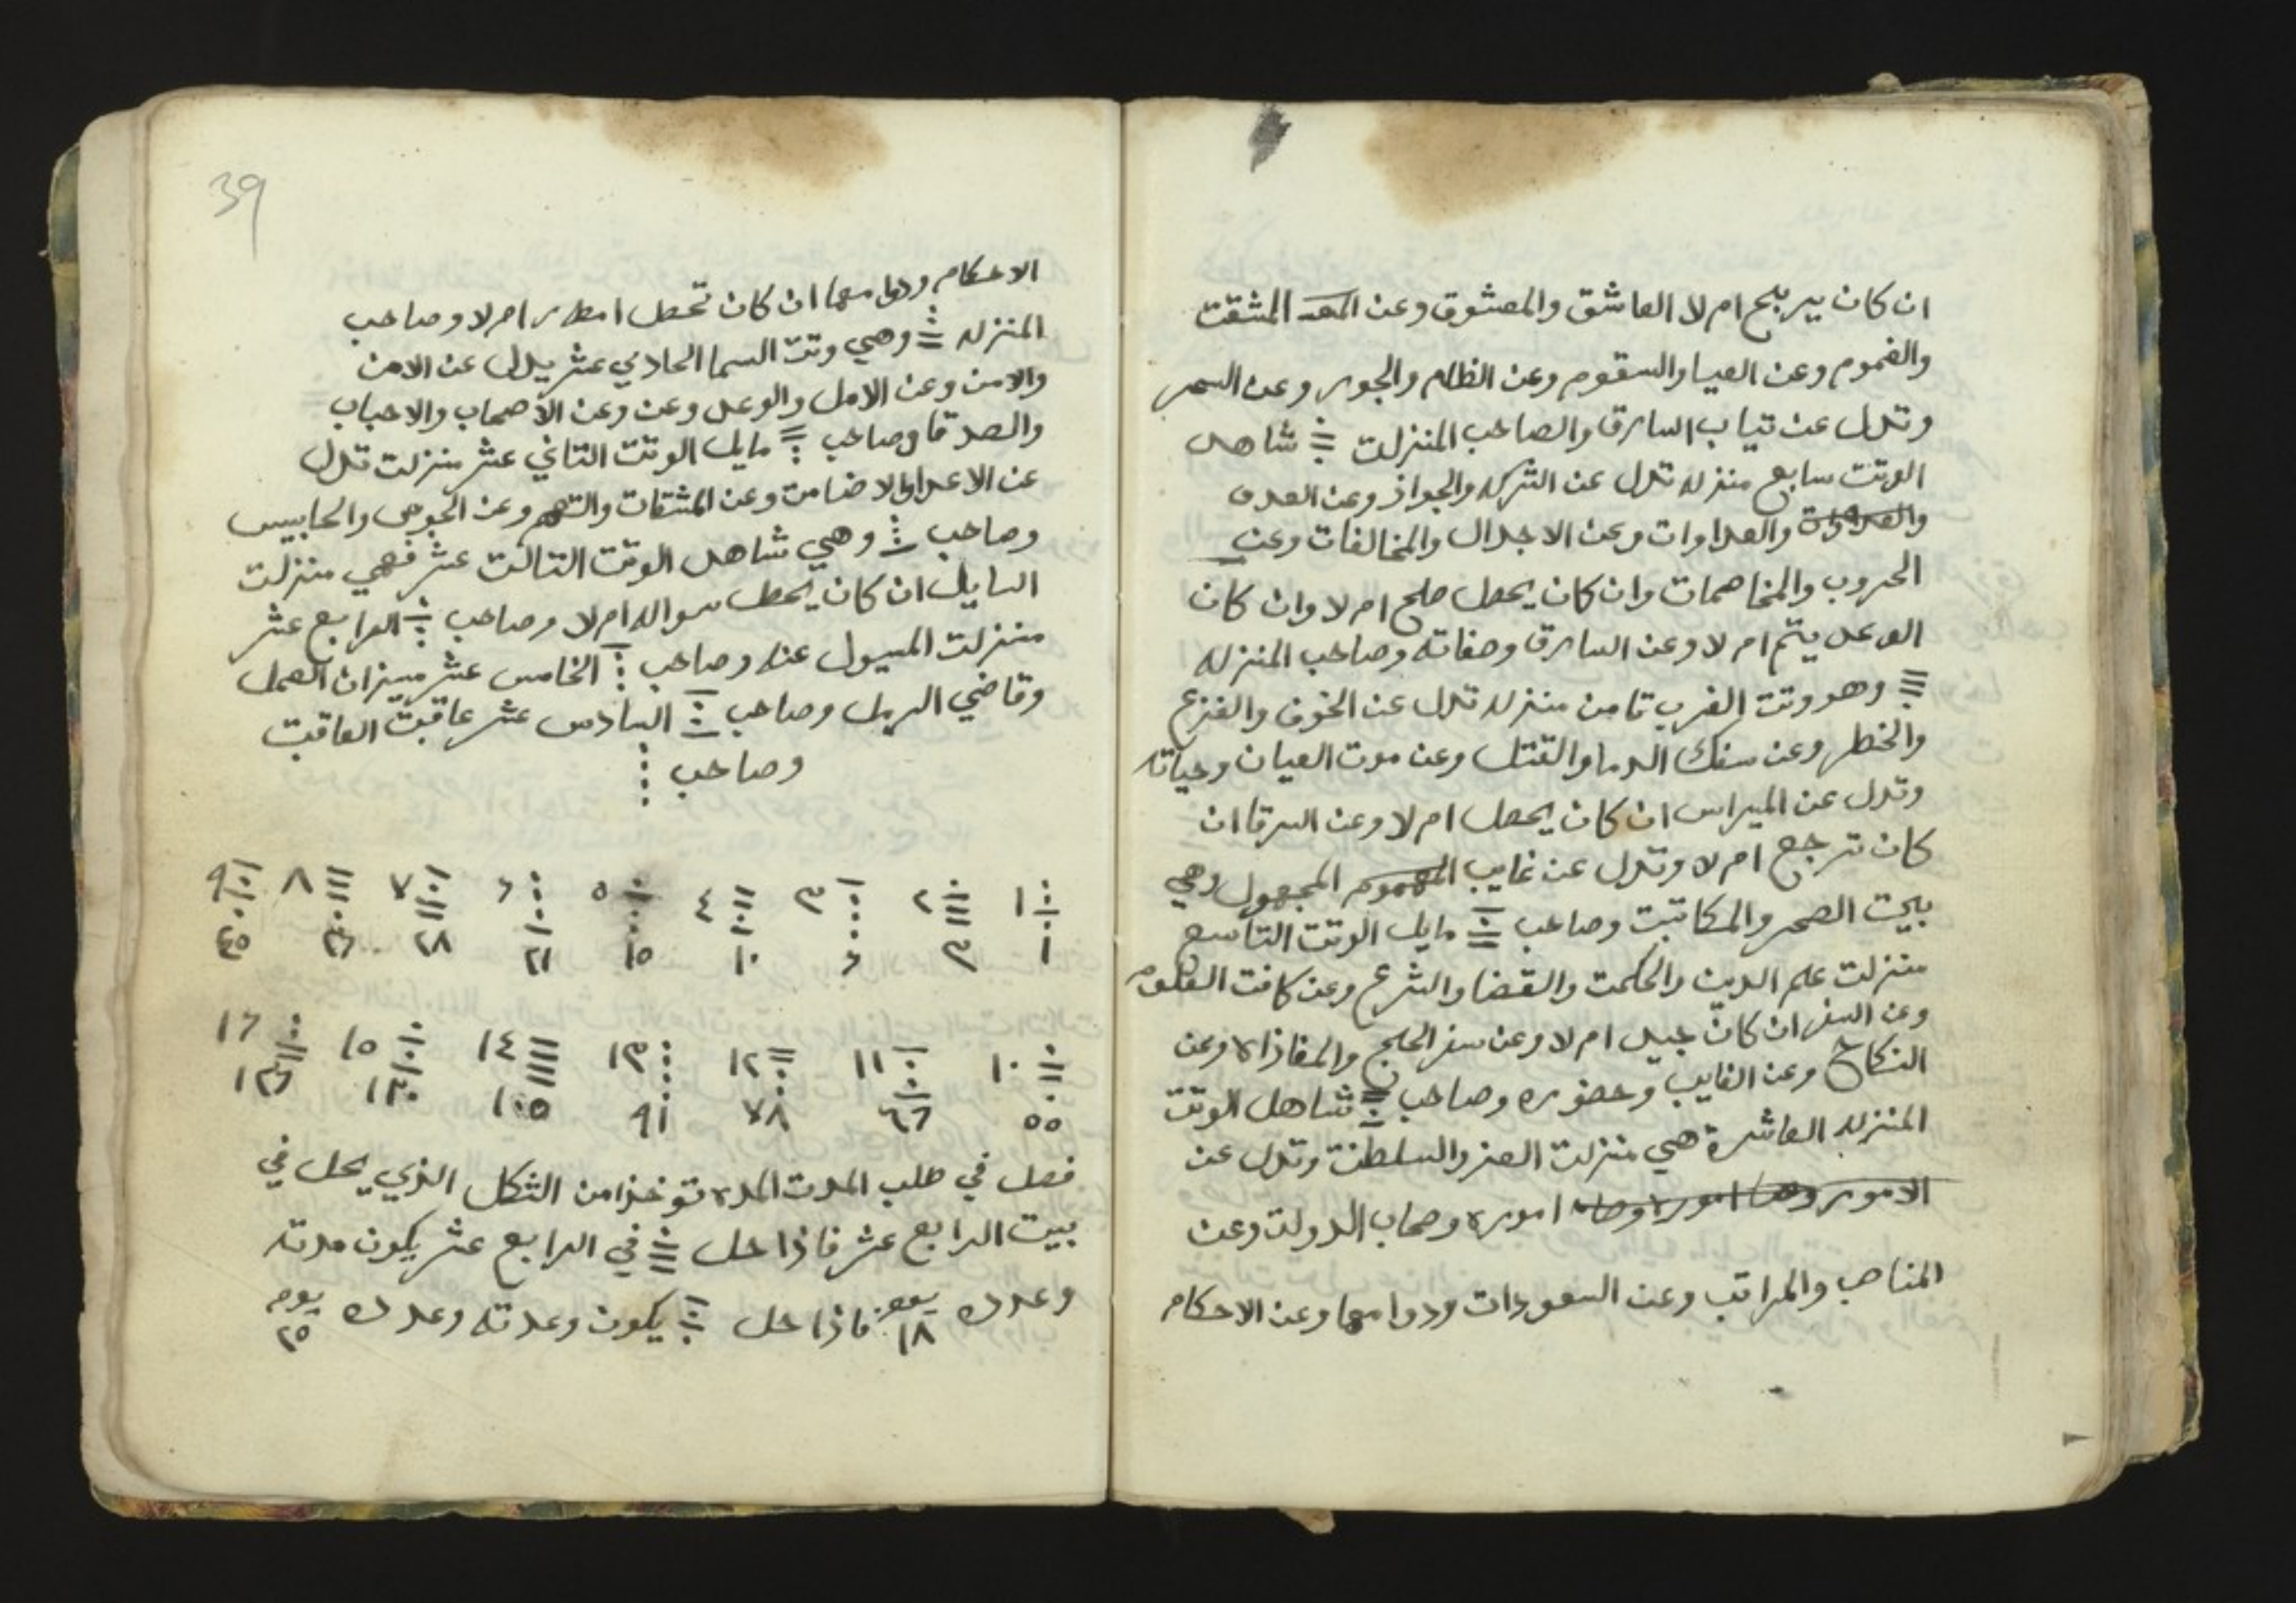 ان كان يربح ام لا العاشق والمعشوق وعن المشقت
والغموم وعن العيا والسقوم وعن الظلم والجور وعن السحر
وتدل عن تياب السارق والصاحب المنزلت شاهد
الوتت سابع منزله تدل عن الشركه والجواز وعن العدو
والعداوات وعن الاجدال والمخالفات وعن
الحروب والمخاصمات وان كان يحصل صلح ام لا وان كان
الوعد يتم ام لا وعن السارق وصفاته وصاحب المنزله
وهو وتت الغرب تامن منزله تدل عن الخوف والفزع
والخطر وعن سفك الدما والقتل وعن موت العيان وحياته
وتدل عن الميراس ان كان يحصل ام لا وعن السرقا ان
كان ترجع ام لا وتدل عن غايب المجهول وهي
بيت الصحر والمكاتبت وصاحب مايل الوتت التاسع
منزلت علم الدين والحكمت والقضا والشرع وعن كافت العلوم
وعن السفر ان كان جيد ام لا وعن سفر الحج والمفاذاه وعن
النكاح وعن الغايب وحضوره وصاحب شاهد الوتت
المنزله العاشرة هي منزلت العز والسلطنت وتدل عن
الامور اموره وصحاب الدولت وعن
المناصب والمراتب وعن السعودات ودوامها وعن الاحكام
39
الاحكام ودوامها ان كان تحصل امطار ام لا وصاحب
المنزله وهي وتت السما الحادي عشر يدل عن الامن
والامن وعن الامل والوعد وعن وعن الاصحاب والاحباب
والصدقا وصاحب مايل الوتت التاني عشر منزلت تدل
عن الاعدا والاضامت وعن المشقات والتهم وعن الجوس والحابيس
وصاحب وهي شاهد الوتت التالت عشر فهي منزلت
السايل ان كان يحصل سواله ام لا وصاحب الرابع عشر
منزلت المسيول عنه وصاحب الخامس عشر ميزان العمل
وقاضي الرمل وصاحب السادس عشر عاقبت العاقبت
وصاحب
١ ٢ ٣ ٤ ٥ ٦ ٧ ٨ ٩
١ ٣ ٦ ١٠ ١٥ ٢١ ٢٨ ٣٦ ٤٥
١٠ ١١ ١٢ ١٣ ١٤ ١٥ ١٦
٥٥ ٦٦ ٧٨ ٩١ ١٠٥ ١٢٠ ١٣٦
فصل في طلب المدت المده توخذ من الشكل الذي يحل في
بيت الرابع عشر فاذا حل في الرابع عشر يكون مدته
وعدده يوم ١٨ فاذا حل يكون وعدته وعدده يوم ٢٥